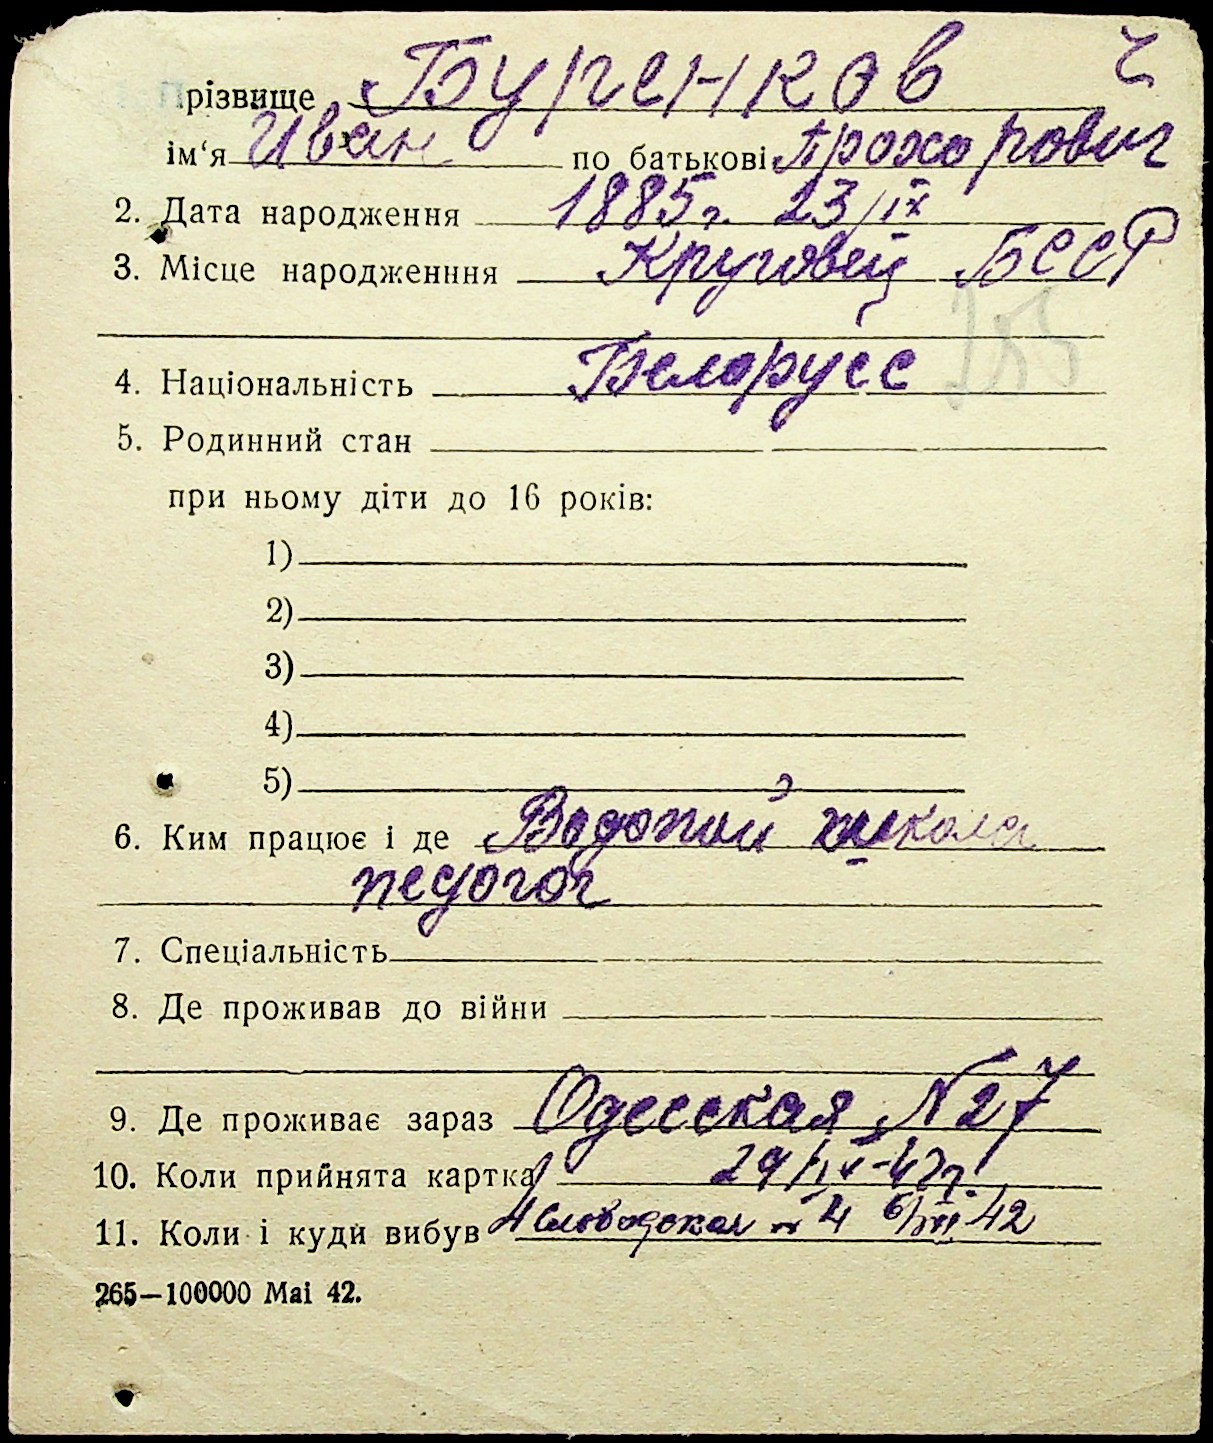 Прізвище Буренков ч
ім‘я Иван по батькові Прохорович
2. Дата народження 1885г. 23/IX
3. Місце народженння Круговец БССР
4. Національність Белорусс
5. Родинний стан
при ньому діти до 16 років:
1)
2)
3)
4)
5)
6. Ким працює і де Водопой школа
педогог
7. Спеціальність
8. Де проживав до війни
9. Де проживає зараз Одесская N 27
10. Коли прийнята картка 29/IX-42г.
11. Коли і куди вибув 4 Слободская 4 42
265—100000 Mai 42.